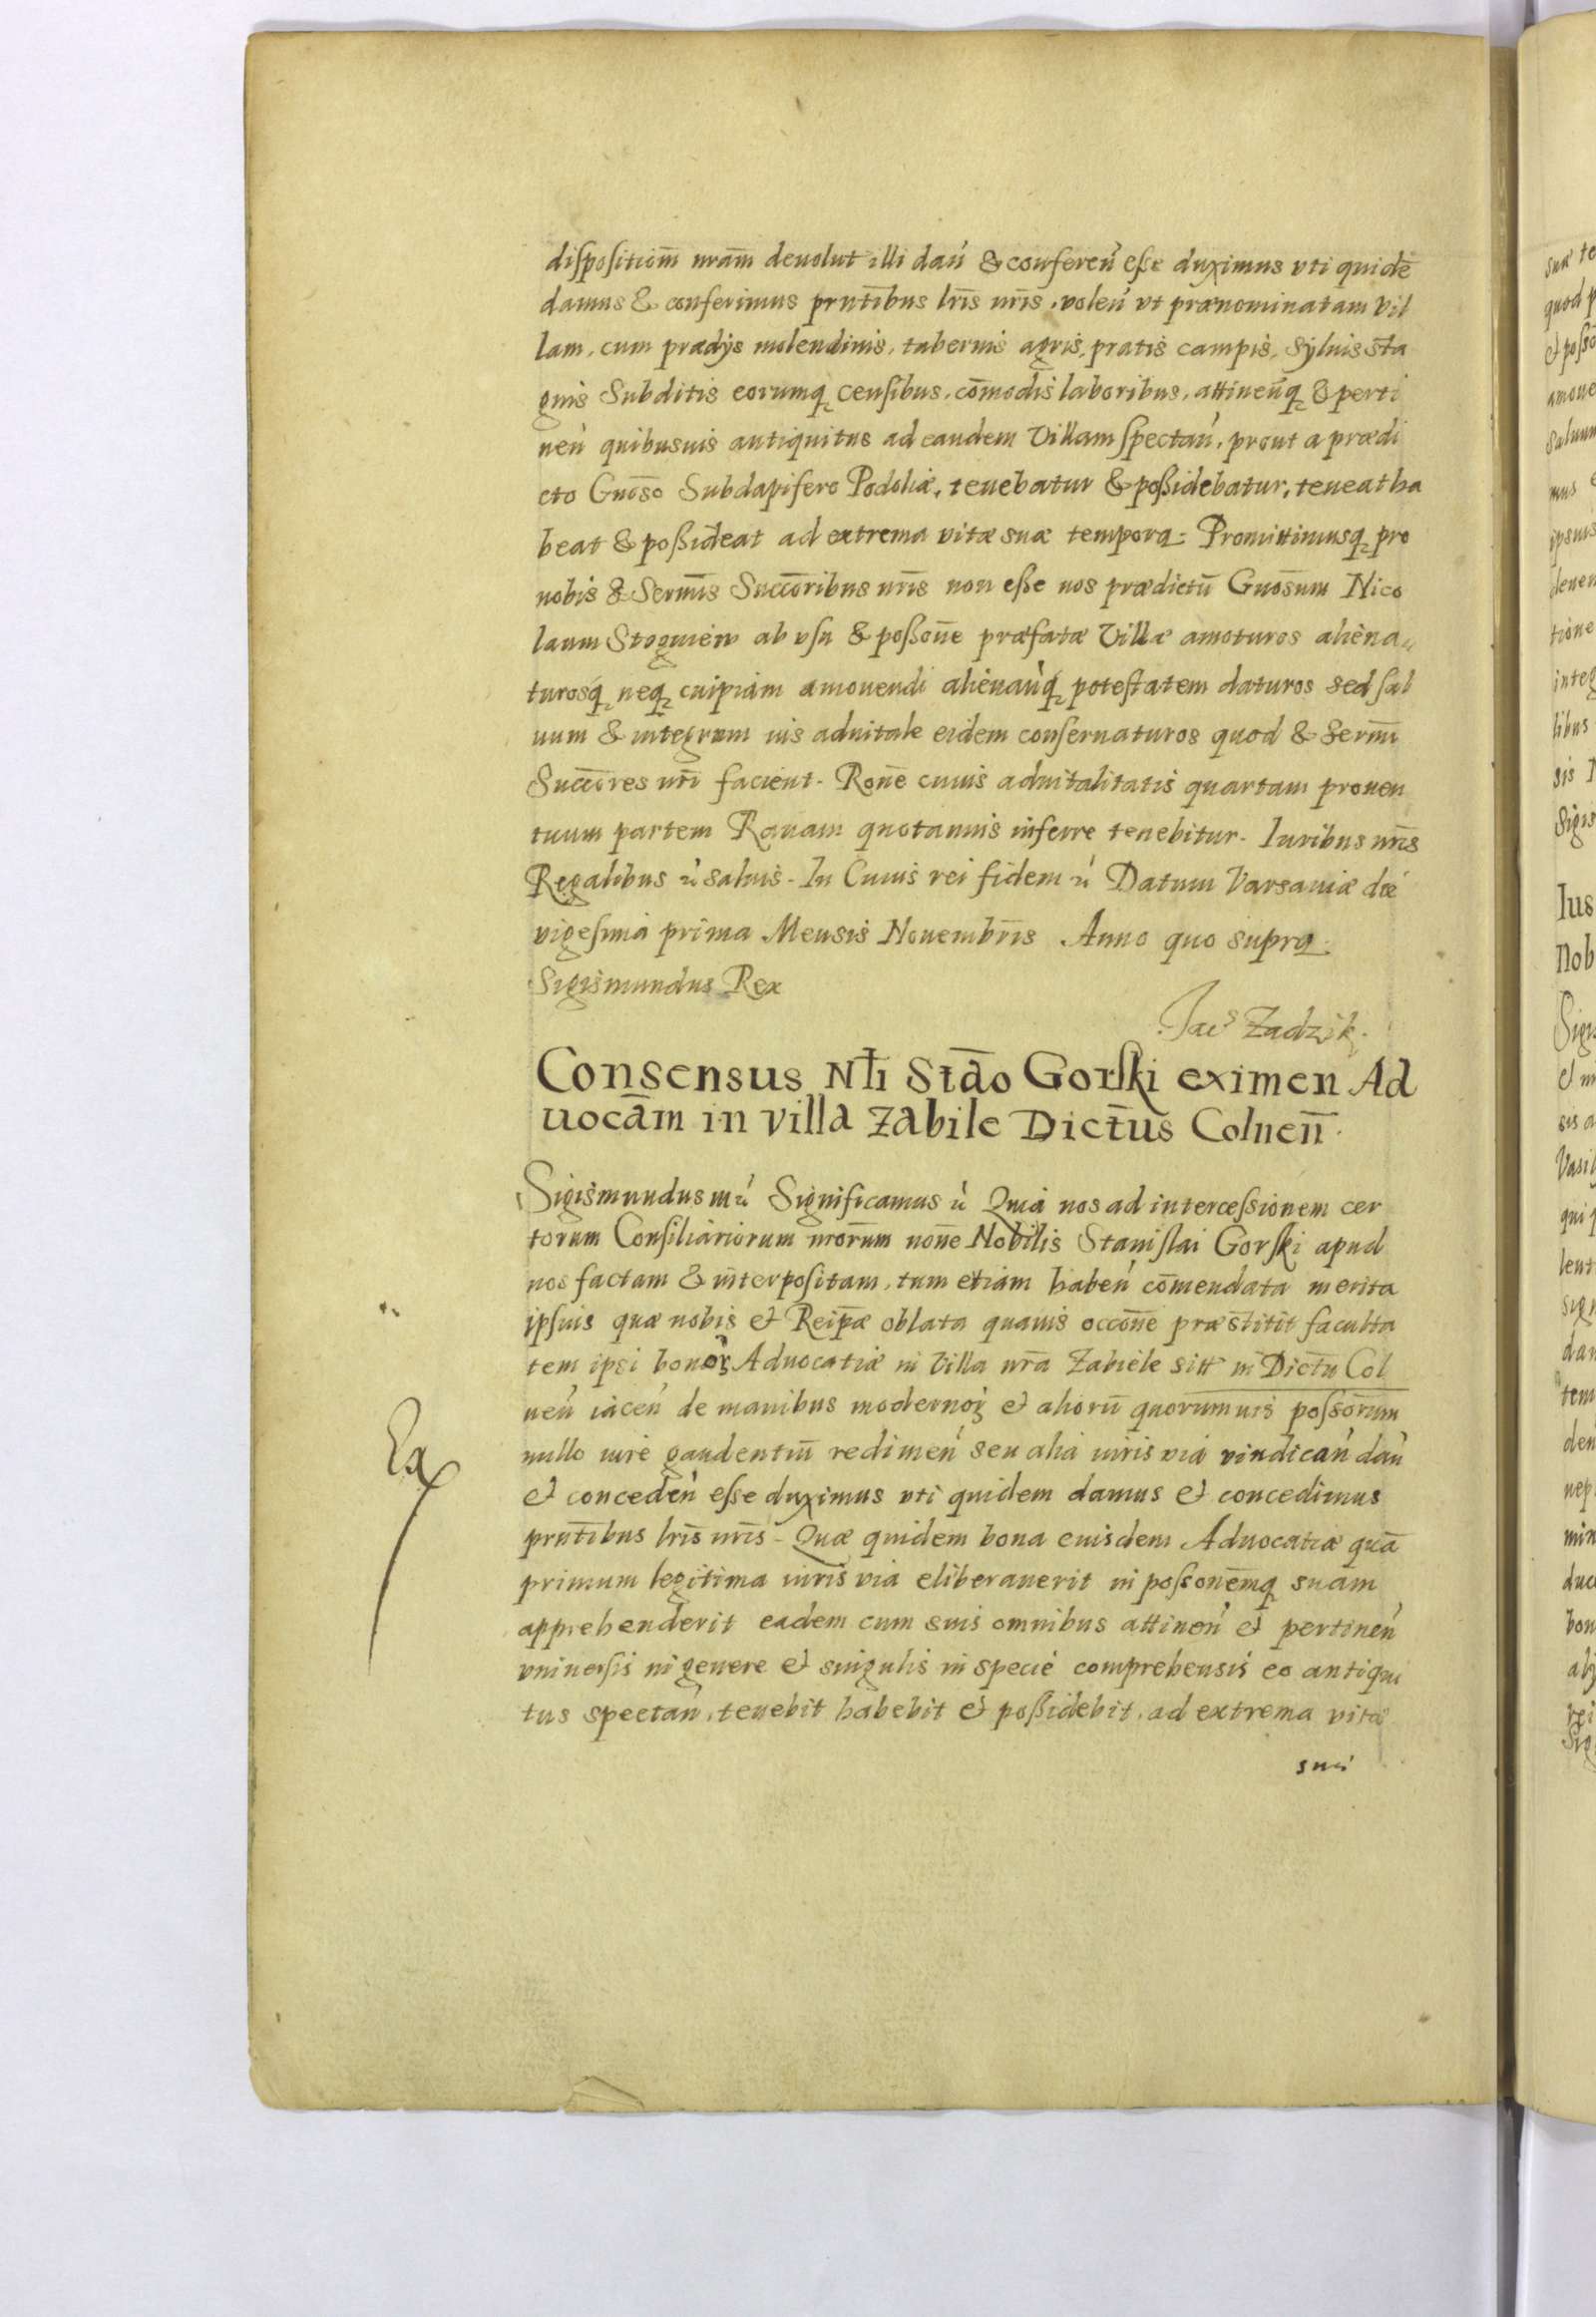 dispositiom̄ nram̄ deuolut illi dań & confereń esse duximus vti quidē
damus & conferimus prntībus lrīs nrīs, voleń vt prænominatam Vil
lam, cum prædijs molendinis, tabernis agris, pratis campis, Syluis sta
gnis Subditis eorumq̨ censibus, cōmodis laboribus, attineńq̨ & perti
neń quibusuis antiquitus ad eandem Villam spectań, prout a prædi
cto Gnoso Subdapifero Podoliæ, tenebatur & possidebatur, teneat ha
beat & possideat ad extrema vitæ suæ tempora. Promittimusq̨ pro
nobis & Sermīs Succōribus nrīs non esse nos prædictū Gnosum Nico
laum Stogniew ab vsu & possoñe præfatæ Villæ amoturos aliena
turosq̨ neq̨ cuipiam amouendi alienańq̨ potestatem daturos sed sal
uum & integrum ius aduitale eidem conseruaturos quod & Sermī
Succōres nrī facient. Roñe cuius aduitalitatis quartam prouen
tuum partem Rauam quotannis inferre tenebitur. Iuribus nrīs
Regalibus ń saluis. In Cuius rei fidem ń Datum Varsauiæ die
vigesima prima Mensis Nouembrīs Anno quo supra.
Sigismundus Rex
Jacs Zadzik.
Consensus Nłi Stāo Gorski eximen Ad
uocām in villa Zabile Dictūs Colneñ.
Sigismundus mń Significamus ń Quia nos ad intercessionem cer
torum Consiliariorum nrorūm noñe Nobilis Stanislai Gorski apud
nos factam & interpositam, tum etiam habeń cōmendata merita
ipsius quæ nobis et Reipæ oblata quauis occoñe præstitit faculta
tem ipsi bonoꝝ Aduocatiæ in Villa nrā Zabiele sitt in Dictū Col
neń iaceń de manibus modernoꝝ et aliorū quorumuis possorūm
nullo iure gaudentiū redimeń seu alia iuris via vindicań dań
et concedeń esse duximus vti quidem damus et concedimus
Ex
prntībus lrīs nrīs. Quæ quidem bona eiusdem Aduocatiæ quā
primum legitima iuris via eliberauerit in possonēmq̨ suam
apprehenderit eadem cum suis omnibus attineń et pertineń
vniuersis in genere et singulis in specie comprehensis eo antiqui
tus spectań, tenebit habebit et possidebit, ad extrema vitæ
suæ